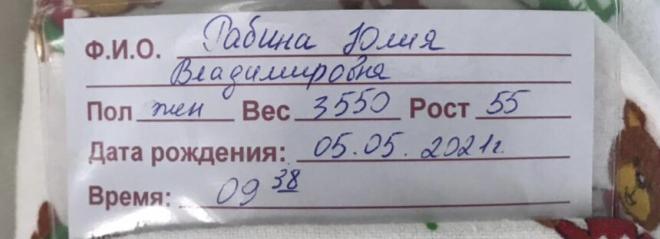 Ф.И.О. Рабина Юлия
Владимировна
Пол жен Вес 3550 Рост 55
Дата рождения: 05.05.2021г.
Время: 09 38